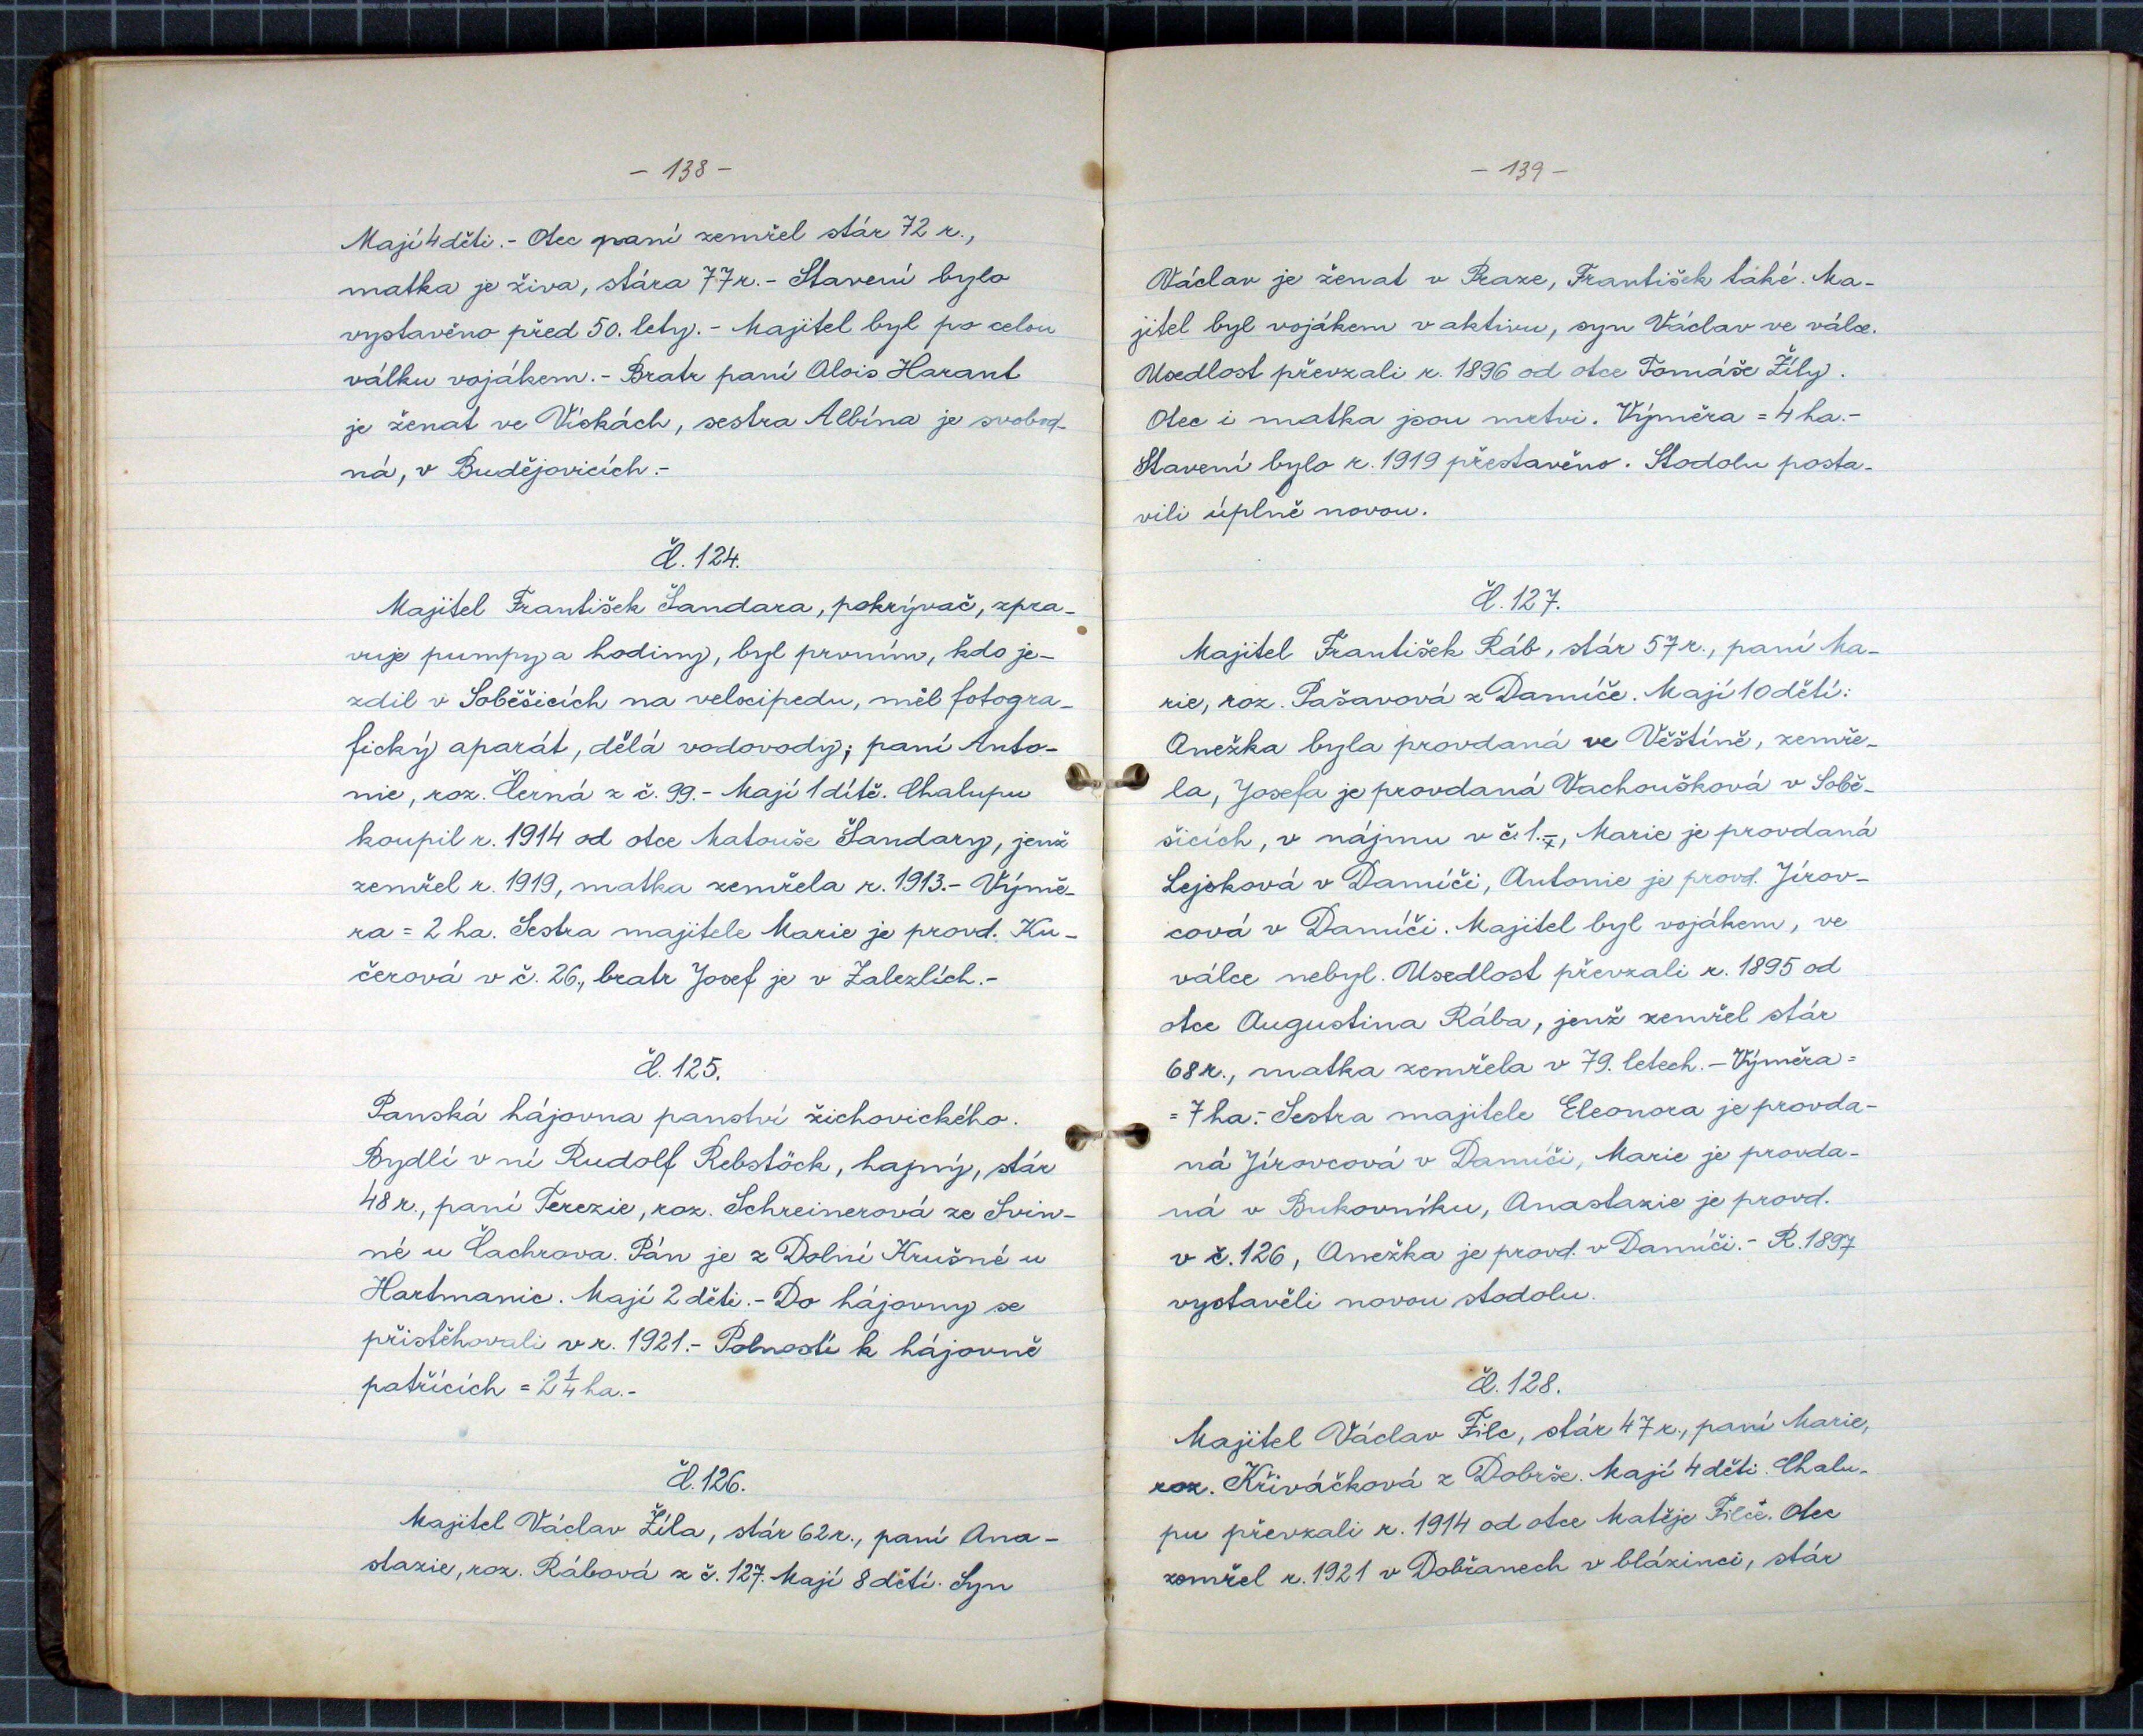 - 138 -
Mají 4 děti.- Otec paní zemřel stár 72 r.,
matka je živa, stára 77 r.- Stavení bylo
vystavěno před 50. lety.- Majitel byl po celou
válku vojákem.- Bratr paní Alois Harant
je ženat ve Vískách, sestra Albína je svobod-
ná, v Budějovicích.-
Čl. 124.
Majitel František Šandara, pokrývač, zpra-
vuje pumpy a hodiny, byl prvním, kdo je-
zdil v Soběšicích na velocipedu, měl fotogra-
fický aparát, dělá vodovody; paní Anto-
nie, roz. Černá z č. 99.- Mají 1 dítě. Chalupu
koupil r. 1914 od otce Matouše Šandary, jenž
zemřel r. 1919, matka zemřela r. 1913.- Výmě-
ra = 2 ha. Sestra majitele Marie je provd. Ku-
čerová v č. 26., bratr Josef je v Zalezlích.-
Čl. 125.
Panská hájovna panství žichovického.
Bydlí v ní Rudolf Rebstöck, hajný, stár
48 r., paní Terezie, roz. Schreinerová ze Svin-
né u Čachrova. Pán je z Dolní Krušné u
Hartmanic. Mají 2 děti.- Do hájovny se
přistěhovali v r. 1921.- Polností k hájovně
patřících = 2 1/4 ha.-
Čl. 126.
Majitel Václav Žíla, stár 62 r., paní Ana-
stazie, roz. Rábová z č. 127. Mají 8 dětí. Syn
- 139 -
Václav je ženat v Praze, František také. Ma-
jitel byl vojákem v aktivu, syn Václav ve válce.
Usedlost převzali r. 1896 od otce Tomáše Žíly.
Otec i matka jsou mrtvi. Výměra = 4 ha.-
Stavení bylo r. 1919 přestavěno. Stodolu posta-
vili úplně novou.
Čl. 127.
Majitel František Ráb, stár 57 r., paní Ma-
rie, roz. Pašavová z Damíče. Mají 10 dětí:
Anežka byla provdaná ve Věštíně, zemře-
la, Josefa je provdaná Vachoušková v Sobě-
šicích, v nájmu v č. 1., Marie je provdaná
Lejsková v Damíči, Antonie je provd. Jírov-
cová v Damíči. Majitel byl vojákem, ve
válce nebyl. Usedlost převzali r. 1895 od
otce Augustina Rába, jenž zemřel stár
68 r., matka zemřela v 79. letech.- Výměra =
= 7 ha.- Sestra majitele Eleonora je provda-
ná Jírovcová v Damíči, Marie je provda-
ná v Bukovníku, Anastazie je provd.
v č. 126, Anežka je provd. v Damíči.- R. 1897
vystavěli novou stodolu.
Čl. 128.
Majitel Václav Filc, stár 47 r., paní Marie,
roz. Křiváčková z Dobrše. Mají 4 děti. Chalu-
pu převzali r. 1914 od otce Matěje Filce. Otec
zemřel r. 1921 v Dobřanech v blázinci, stár